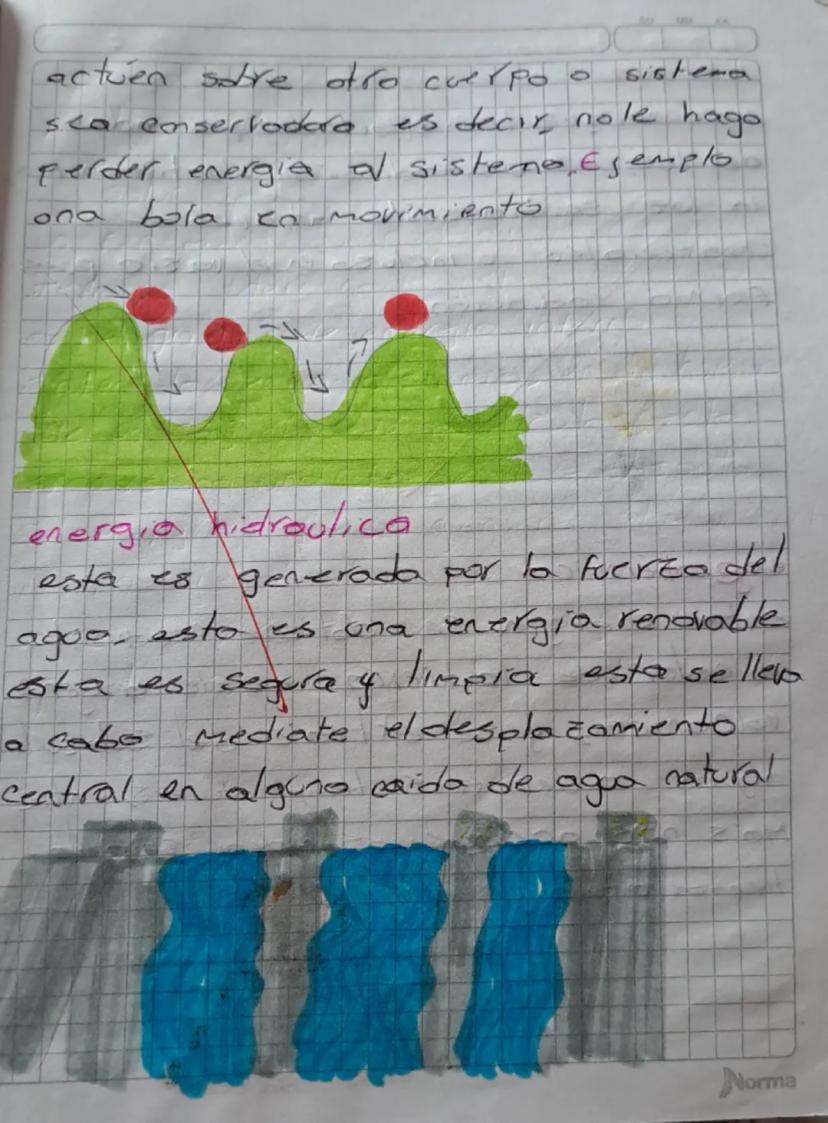 actúen sobre otro cuerpo o sistema
sea conservadora es decir, no le haga
perder energia al sistema. Ejemplo
una bola en movimiento
energia hidraulica
esta es generada por la fuerza del
agua. esta es una energia renovable
esta es segura y limpia esta se lleva
a cabo mediate el desplazamiento
central en alguna caida de agua natural
Norma